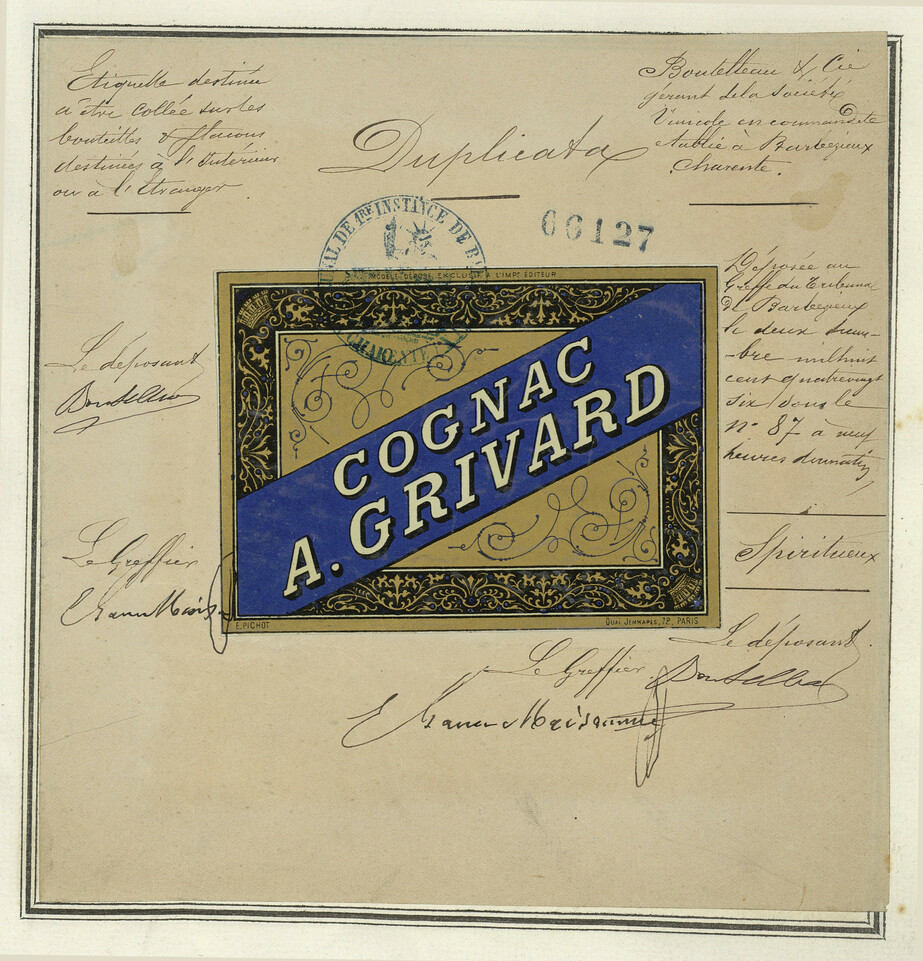 Etiquette destinée
à être collée sur les
bouteilles & flacons
destinées à l'Intérieur
ou à l'étranger
Duplicata
Boutelleau & Cie
gérant de la Société
Vinicole en commandite
établie à Barbezieux
Charente.
66127
TRIBUNAL DE 1RE INSTANCE DE
CHARENTE
Déposée au
Greffe du Tribunal
de Barbezieux
le deux
-bre mil huit
cent quatrevingt
six sous le
n° 87 à neuf
heures du matin
Spiritueux
Le déposant
Boutelleau
Le Greffier
MODÈLE DÉPOSÉ, EXCLUSIF A L'IMPR ÉDITEUR
COGNAC
A. GRIVARD
E. PICHOT
QUAI JEMMAPES, 72, PARIS
Le déposant
Boutelleau
Le Greffier